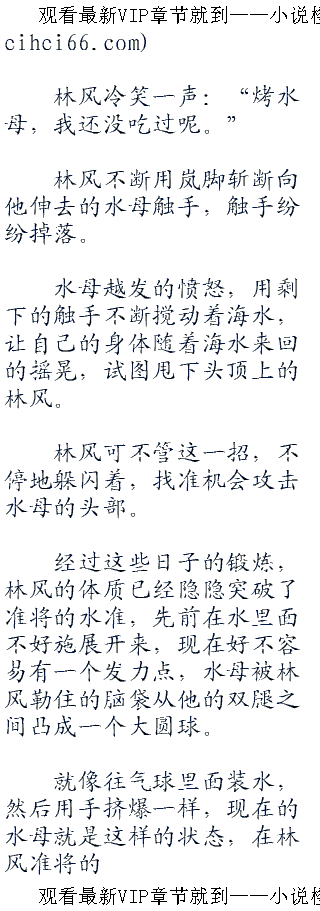 观看最新VIP章节就到——小说
cihci66.com)
林风冷笑一声：“烤水
母，我还没吃过呢。”
林风不断用岚脚斩断向
他伸去的水母触手，触手纷
纷掉落。
水母越发的愤怒，用剩
下的触手不断搅动着海水，
让自己的身体随着海水来回
的摇晃，试图甩下头顶上的
林风。
林风可不管这一招，不
停地躲闪着，找准机会攻击
水母的头部。
经过这些日子的锻炼，
林风的体质已经隐隐突破了
准将的水准，先前在水里面
不好施展开来，现在好不容
易有一个发力点，水母被林
风勒住的脑袋从他的双腿之
间凸成一个大圆球。
就像往气球里面装水，
然后用手挤爆一样，现在的
水母就是这样的状态，在林
风准将的
观看最新VIP章节就到——小说